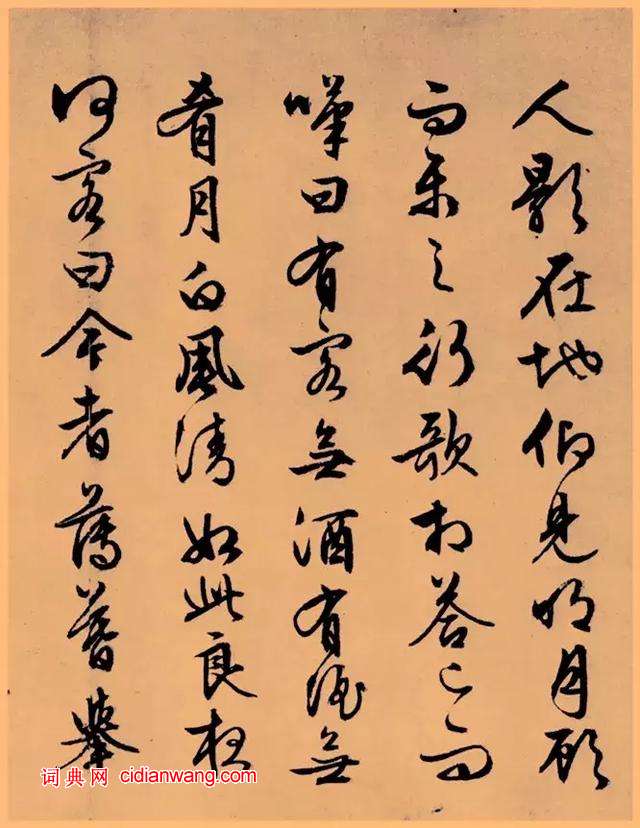 人影在地仰見明月顧
而樂之行歌相答已而
嘆曰有客無酒有酒無
肴月白風清如此良夜
何客曰今者薄暮舉
词典网 cidianwang.com